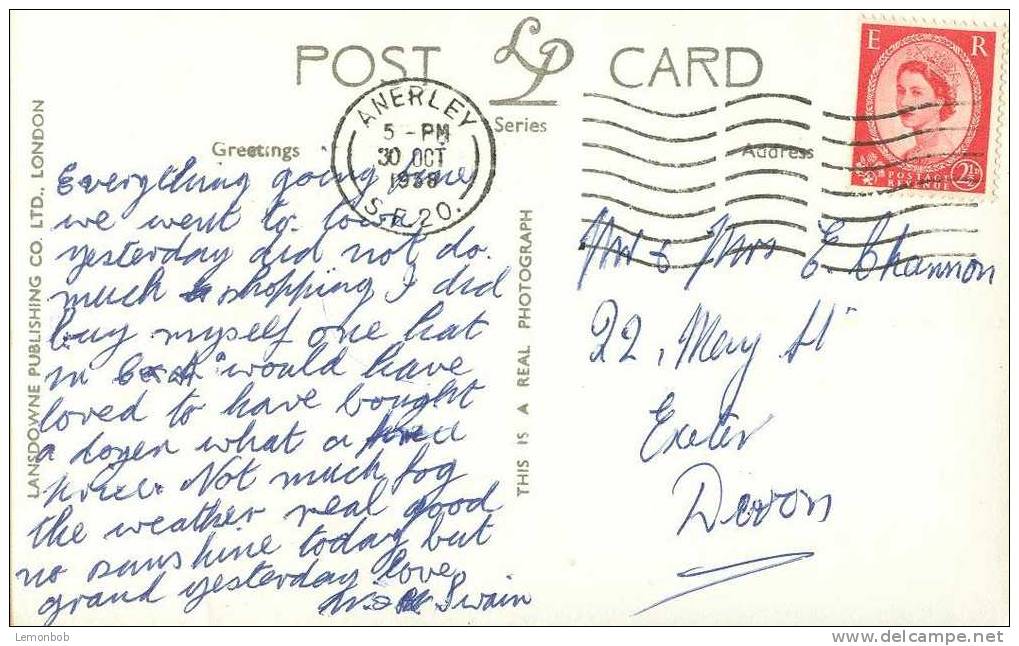 POST LP CARD
Series
Greetings
Address
ANERLEY
5 - PM
30 OCT
1958
S.E.20.
E R
POSTAGE
REVENUE
2½D
LANSDOWNE PUBLISHING CO. LTD., LONDON
THIS IS A REAL PHOTOGRAPH
Everything going fine
we went to town
yesterday did not do
much shopping I did
buy myself one hat
in C & A would have
loved to have bought
a dozen what a
price. Not much fog
the weather real good
no sunshine today but
grand yesterday love
Swain
Mr & Mrs E. Channon
22, Mary St
Exeter
Devon
Lemonbob
www.delcampe.net